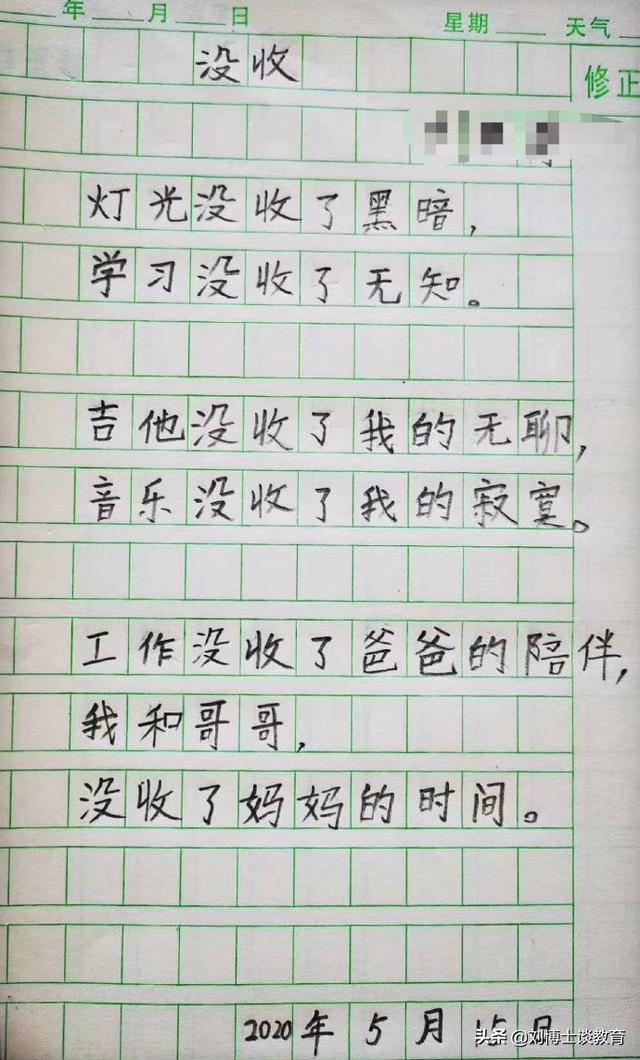 年 月 日 星期 天气
没收
修正
灯光没收了黑暗，
学习没收了无知。
吉他没收了我的无聊，
音乐没收了我的寂寞。
工作没收了爸爸的陪伴，
我和哥哥，
没收了妈妈的时间。
2020年5月15日
头条@刘博士谈教育